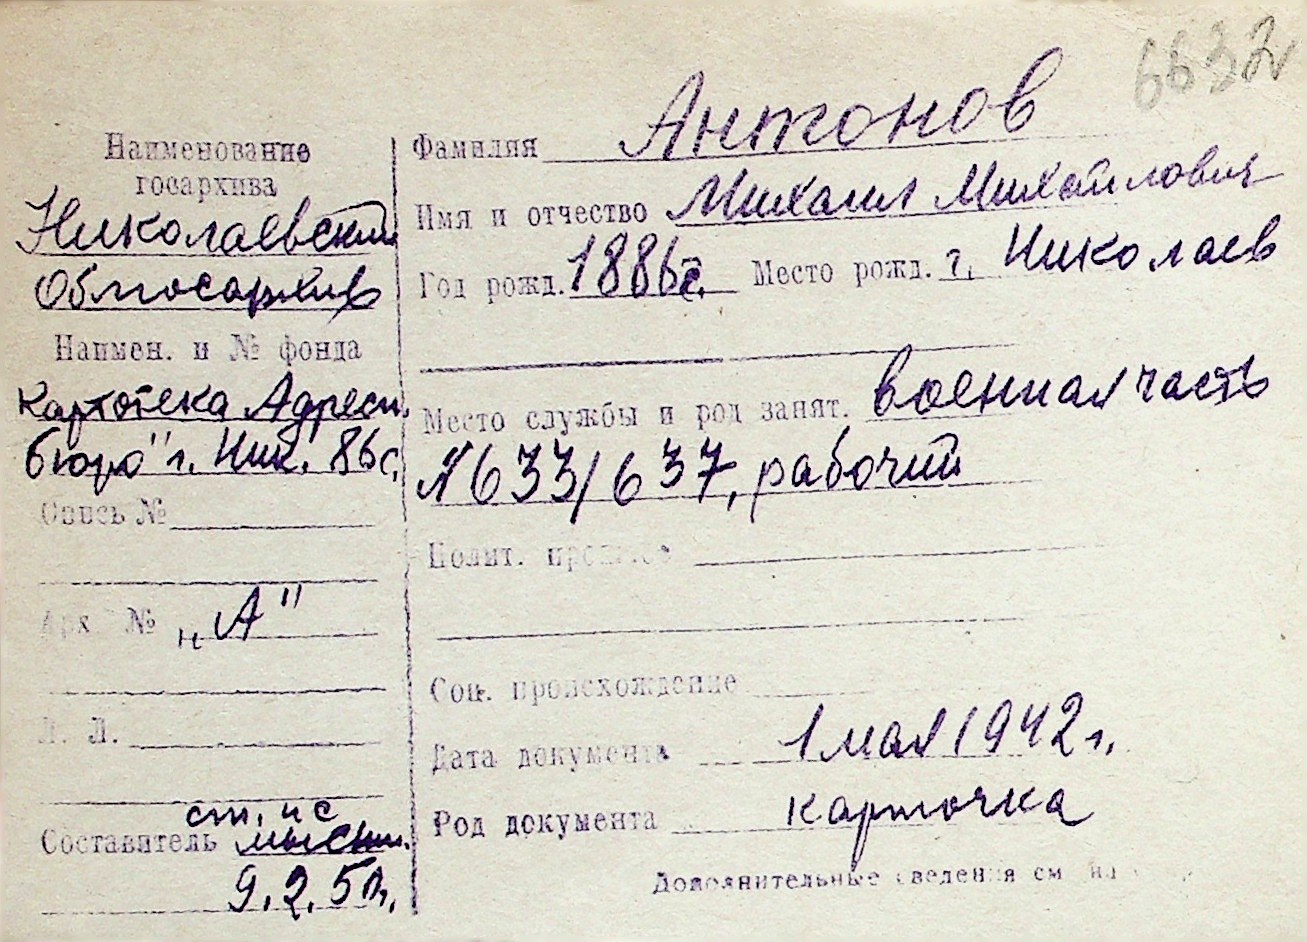 6632
Наименование
госархива
Николаевский
Облгосархив
Наимен. и № фонда
Картотека Адресн.
бюро" г. Ник. 86 с.
Опись №
Арх. № „А"
Л. Л.
ст. н с
Составитель
9.2.50г.
Фамилия Антонов
Имя и отчество Михаил Михайлович
Год рожд. 1886г. Место рожд. г. Николаев
Место службы и род занят. военная часть
№ 633/637, рабочий
Полит. прошлое
Соц. происхождение
Дата документа 1 мая 1942 г.
Род документа карточка
Дополнительные сведения см на